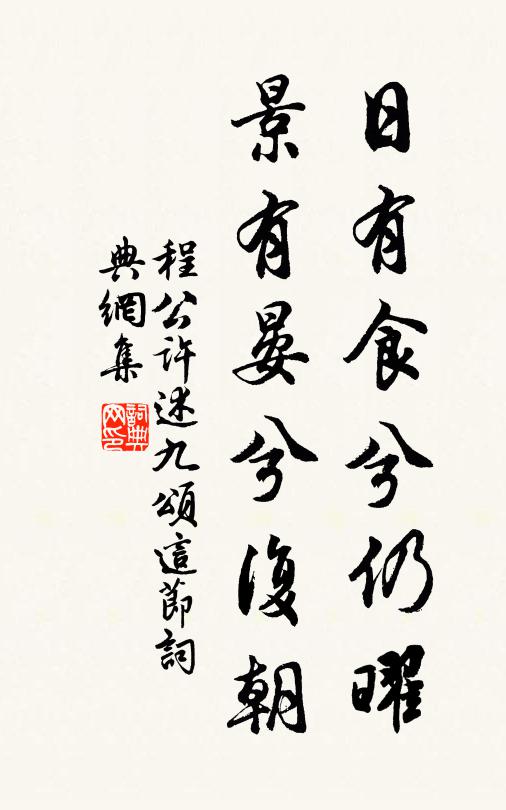 日有食兮仍曜
景有晏兮復朝
程公許述九頌這節詞
典網集
詞典網印